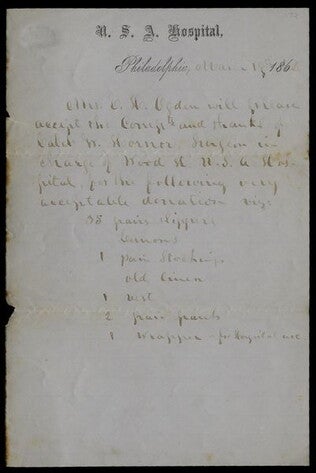 U. S. A. Hospital,
Philadelphia, March 186
Mrs. C. H. Ogden will please
accept the Complts and thanks of
Caleb W. Hornor, Surgeon in
charge of Wood St U.S.A Hos-
pital, for the following very
acceptable donation viz:
35 pairs slippers
Lemons
1 pair Stockings
old linen
1 vest
2 pair pants
1 Wrapper - for Hospital use